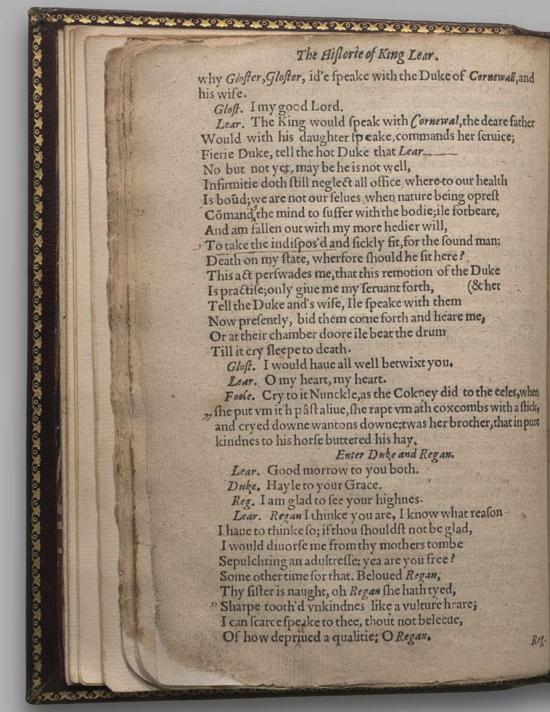 The Historie of King Lear.
why Gloster, Gloster, id'e speake with the Duke of Cornewall, and
his wife.
Glost. I my good Lord.
Lear. The King would speak with Cornewal, the deare father
Would with his daughter speake, commands her seruice;
Fierie Duke, tell the hot Duke that Lear—
No but not yet, may be he is not well,
Infirmitie doth still neglect all office where-to our health
Is boūd; we are not our selues when nature being oprest
Cōmand, the mind to suffer with the bodie; ile forbeare,
And am fallen out with my more hedier will,
To take the indispos'd and sickly fit, for the sound man;
Death on my state, wherfore should he sit here?
This act perswades me, that this remotion of the Duke
Is practise; only giue me my seruant forth, (& her
Tell the Duke and's wife, Ile speake with them
Now presently, bid them come forth and heare me,
Or at their chamber doore ile beat the drum
Till it cry sleepe to death.
Glost. I would haue all well betwixt you.
Lear. O my heart, my heart.
Foole. Cry to it Nunckle, as the Cokney did to the eeles, when
she put vm ith pâst aliue, she rapt vm ath coxcombs with a stick,
and cryed downe wantons downe; twas her brother, that in pure
kindnes to his horse buttered his hay.
Enter Duke and Regan.
Lear. Good morrow to you both.
Duke. Hayle to your Grace.
Reg. I am glad to see your highnes.
Lear. Regan I thinke you are, I know what reason
I haue to thinke so; if thou shouldst not be glad,
I would diuorse me from thy mothers tombe
Sepulchring an adultresse; yea are you free?
Some other time for that. Beloued Regan,
Thy sister is naught, oh Regan she hath tyed,
Sharpe tooth'd vnkindnes like a vulture heare;
I can scarce speake to thee, thout not beleeue,
Of how depriued a qualitie; O Regan.
Reg.